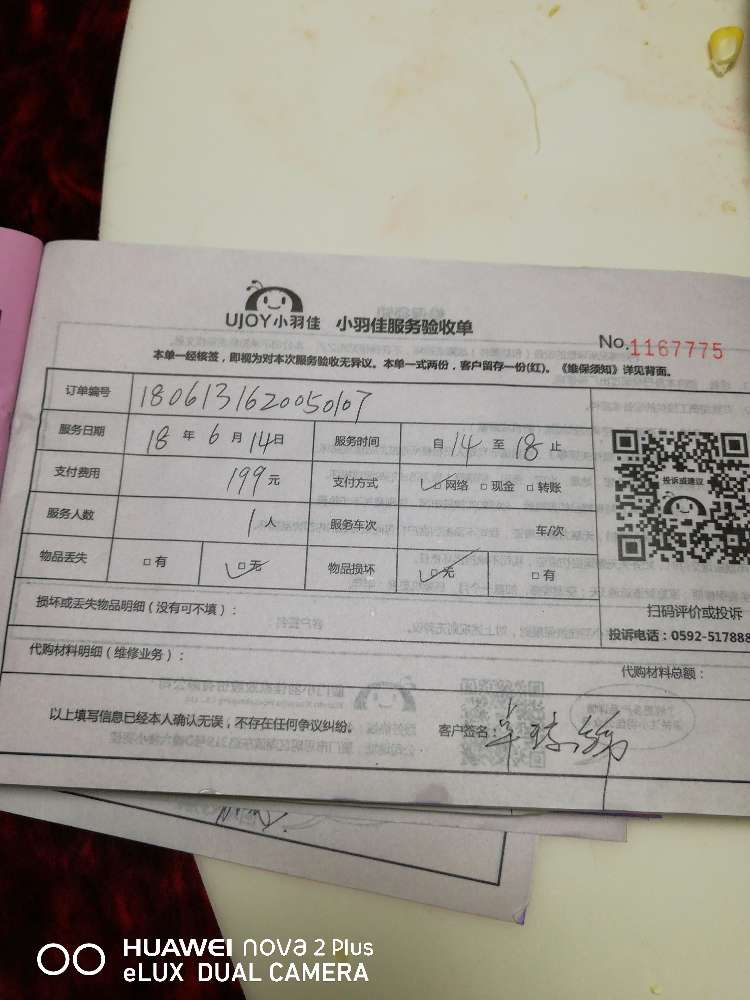 UJOY小羽佳 小羽佳服务验收单
No.1167775
本单一经核签，即视为对本次服务验收无异议。本单一式两份，客户留存一份(红)。《维保须知》详见背面。
订单编号 1806131620050107
服务日期 18 年 6 月 14 日 服务时间 自 14 至 18 止
支付费用 199 元 支付方式 □网络 □现金 □转账
投诉或建议
服务人数 1 人 服务车次 车/次
物品丢失 □有 □无 物品损坏 □无 □有
损坏或丢失物品明细（没有可不填）：
扫码评价或投诉
投诉电话：0592-517888
代购材料明细（维修业务）：
代购材料总额：
以上填写信息已经本人确认无误，不存在任何争议纠纷。
客户签名：
HUAWEI nova 2 Plus
eLUX DUAL CAMERA